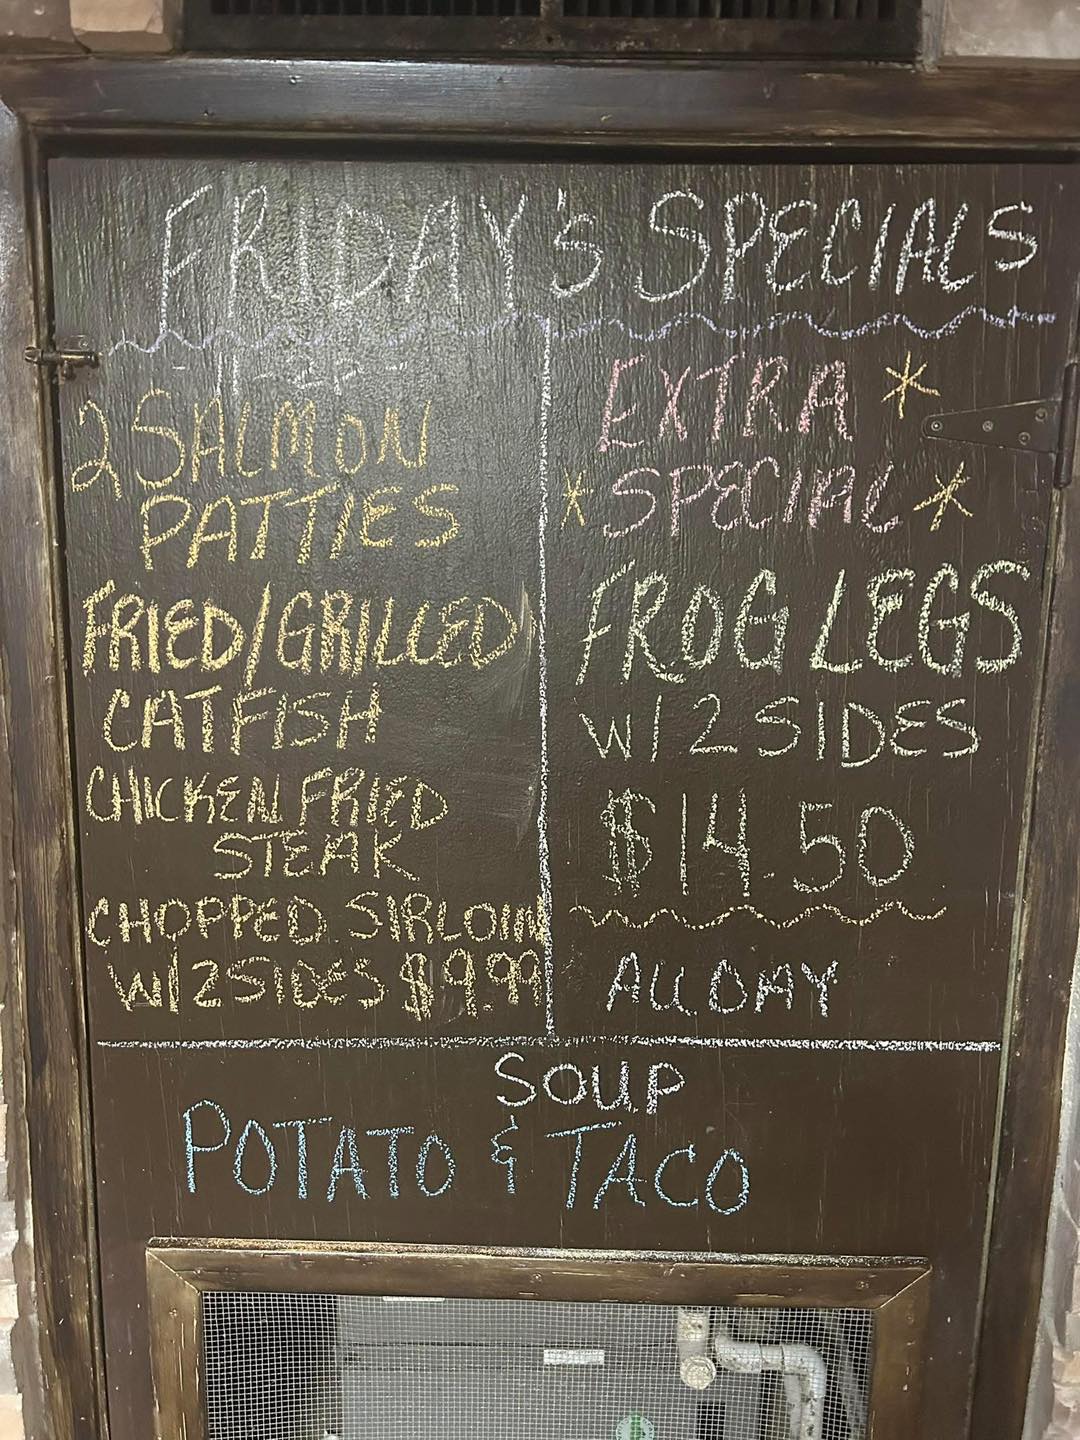 FRIDAY's SPECIALS
11-2p-
2 SALMON
PATTIES
FRIED/GRILLED
CATFISH
CHICKEN FRIED
STEAK
CHOPPED SIRLOIN
W/2 SIDES $9.99
EXTRA *
* SPECIAL *
FROG LEGS
W/ 2 SIDES
$14.50
ALL DAY
SOUP
POTATO & TACO